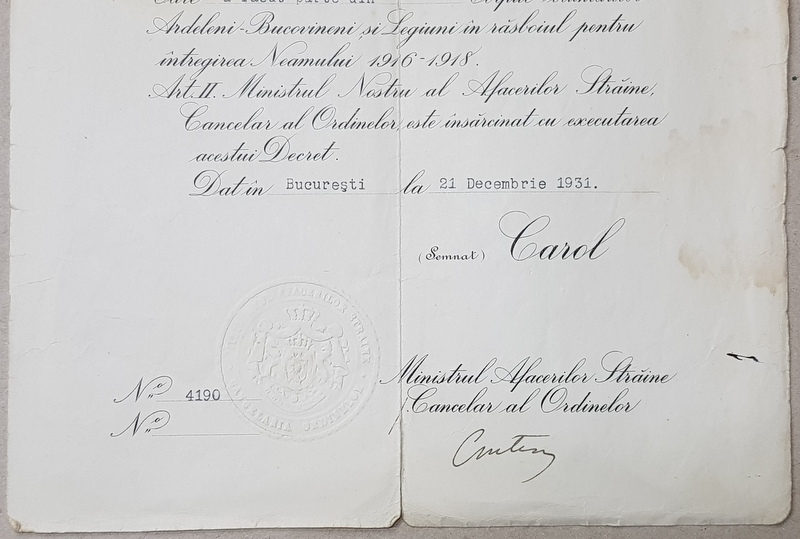 Ardeleni-Bucovineni și Legiuni în răsboiul pentru
întregirea Neamului 1916-1918.
Art. II. Ministrul Nostru al Afacerilor Străine,
Cancelar al Ordinelor, este însărcinat cu executarea
acestui Decret.
Dat în București la 21 Decembrie 1931.
(Semnat) Carol
Ministrul Afacerilor Străine
Cancelar al Ordinelor
No 4190
No